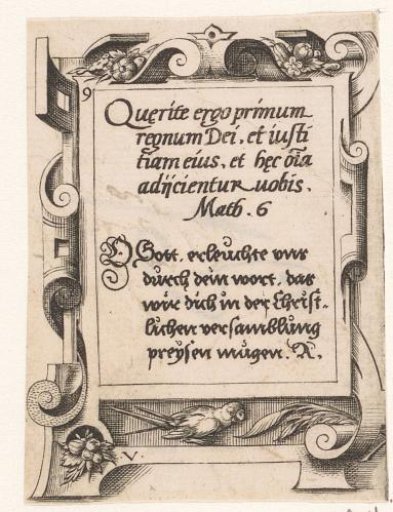 9
Quęrite ergo primum
regnum Dei, et iusti
tiam eius, et hęc oīa
adijcientur uobis.
Math. 6
O Gott, erleuchte vnr
durch dein wort, das
wir dich in der Christ-
lichen versamblŭng
preÿsen mŭgen. A.
V.